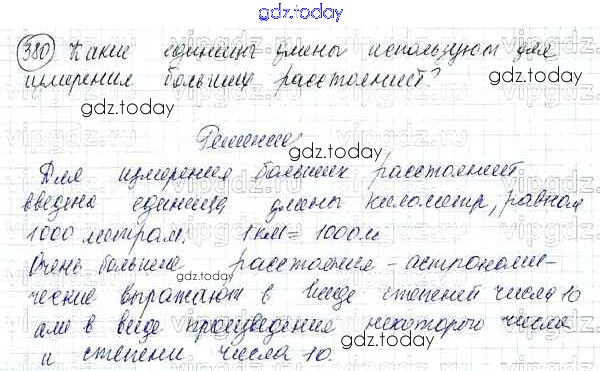 gdz.today
380 Какие единицы длины используют для
измерения больших расстояний?
gdz.today
Решение
gdz.today
Для измерения больших расстояний
введена единица длины километр, равная
1000 метрам. 1км = 1000м
Очень большие расстояния - астрономи-
ческие выражают в виде степеней числа 10
или в виде произведение некоторого числа
и степени числа 10.
gdz.today